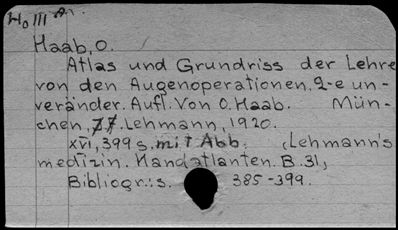 Haab, O.
Atlas und Grundriss der Lehre
von den Augenoperationen. 2-e un-
veränder. Aufl. Von O. Haab. Mün-
chen, Lehmann, 1920.
XVI, 399 s. mit Abb. (Lehmann's
medizin. Handatlanten. B. 31,
Bibliogr.: s. 385-399.